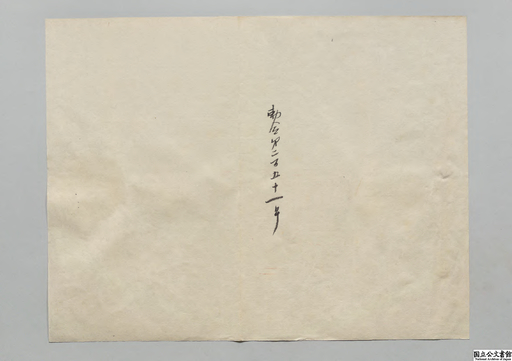 勅令第二百五十一号
国立公文書館
National Archives of Japan